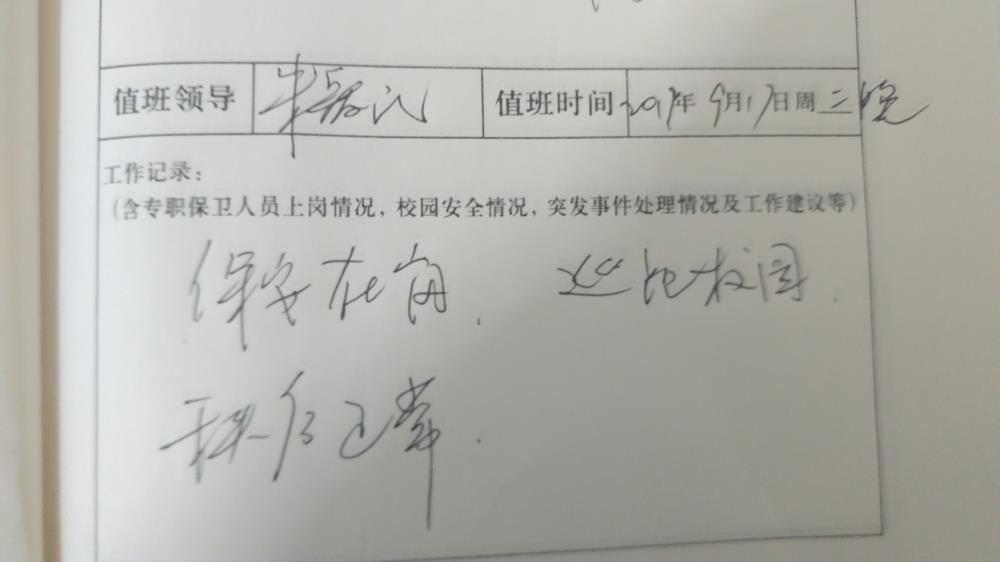 值班领导 值班时间 2019年9月17日周二晚
工作记录:
(含专职保卫人员上岗情况,校园安全情况,突发事件处理情况及工作建议等)
保安在岗. 巡视校园.
一切正常.